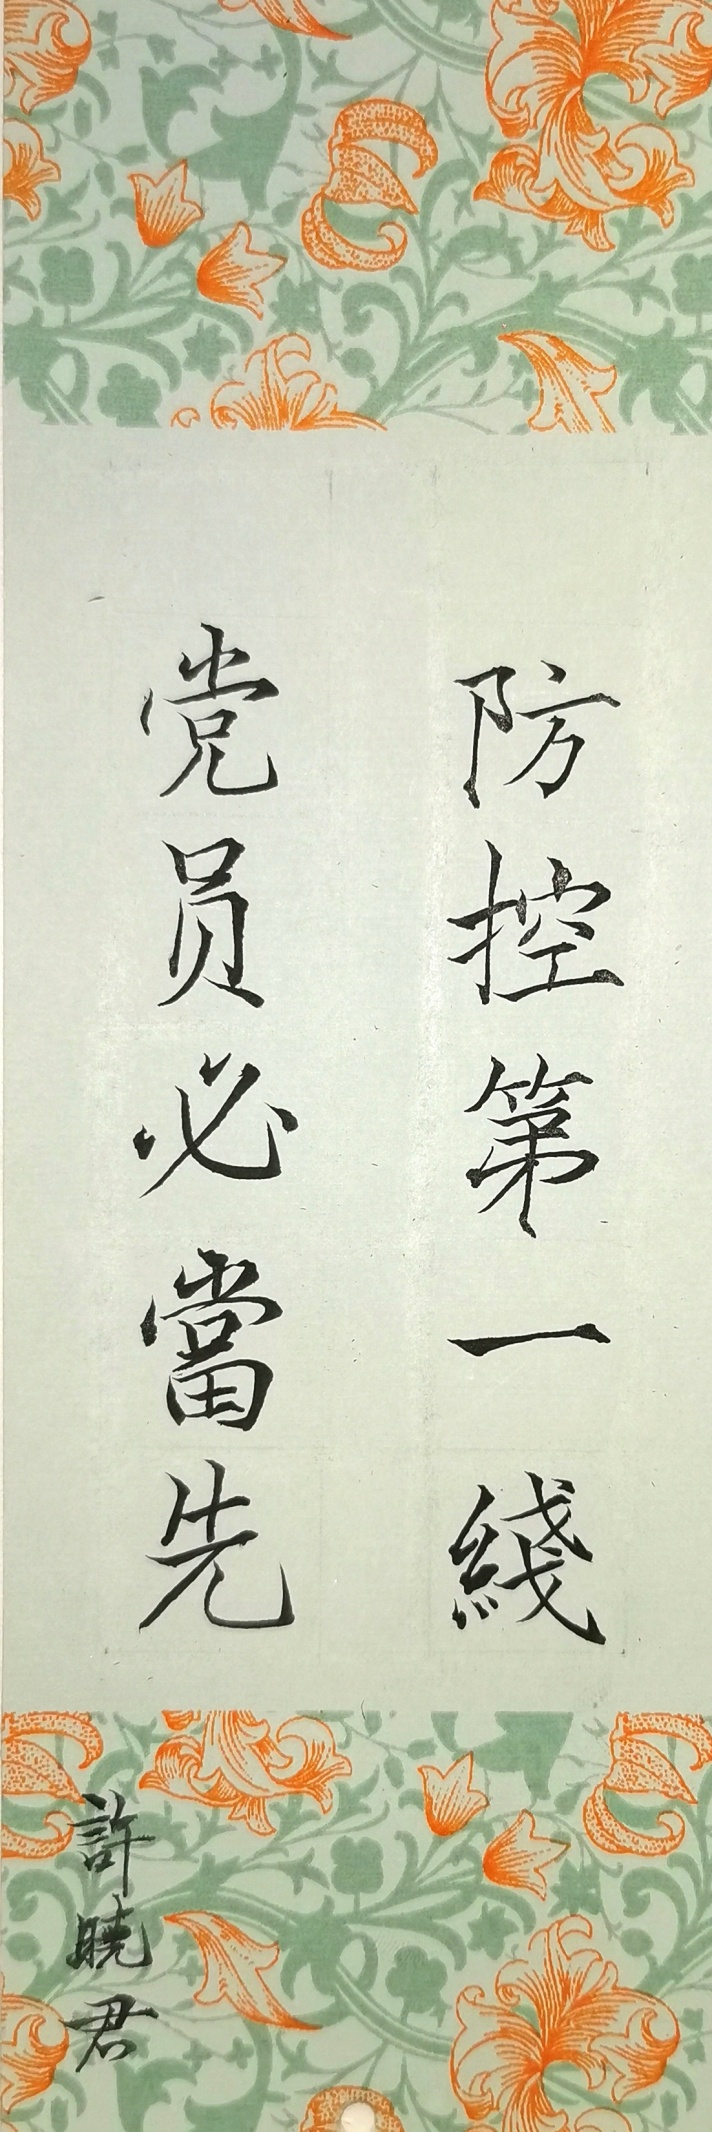 防控第一綫
党员必當先
許曉君